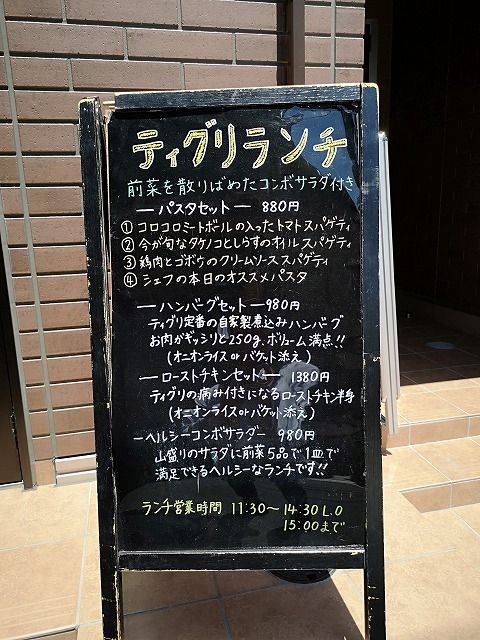 ティグリランチ
前菜を散りばめたコンボサラダ付き
ーパスタセットー 880円
① コロコロミートボールの入ったトマトスパゲティ
② 今が旬なタケノコとしらすのオイルスパゲティ
③ 鶏肉とゴボウのクリームソーススパゲティ
④ シェフの本日のオススメパスタ
ーハンバーグセットー980円
ティグリ定番の自家製煮込みハンバーグ
お肉がギッシリと250g、ボリューム満点!!
(オニオンライスorバケット添え)
ーローストチキンセットー 1380円
ティグリの病み付きになるローストチキン半身
(オニオンライスorバケット添え)
ーヘルシーコンボサラダー 980円
山盛りのサラダに前菜5品で1皿で
満足できるヘルシーなランチです!!
ランチ営業時間 11:30〜14:30 L.O
15:00まで